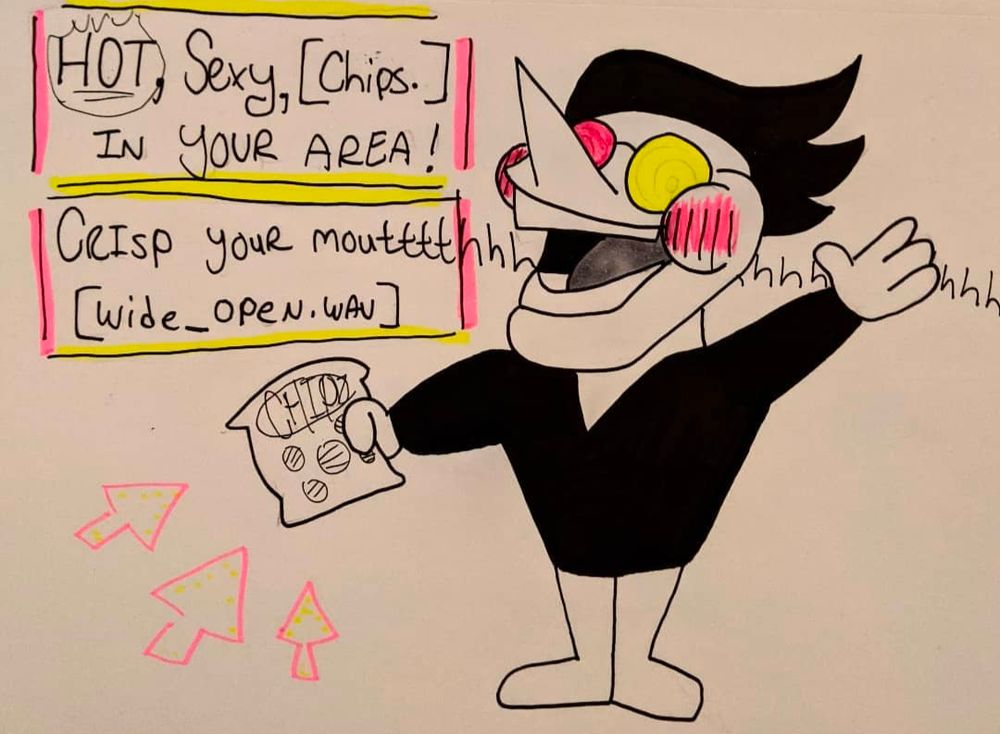 HOT, Sexy, [Chips.]
IN YOUR AREA!
CRISP YOUR mouttttthhh hhh hhh
[Wide_OPEN.WAV]
CHIPZ